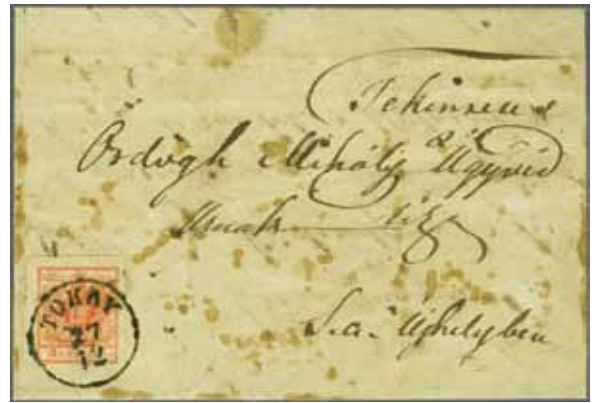 Tekintetes
Ördögh Mihály Ügyvéd
Urnak
S. a. Ujhelyben
TOKAY
27
12